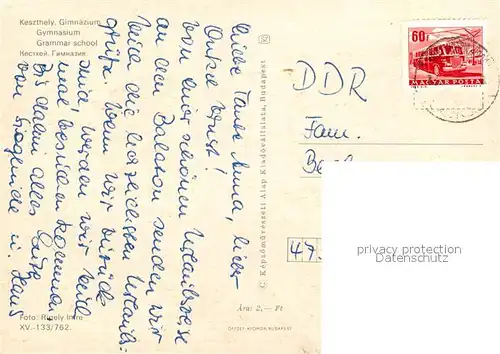 Keszthely, Gimnázium
Gymnasium
Grammar school
Кестхей. Гимназия
Liebe Tante Anna, lieber
Onkel Ernst!
Von einer schönen Urlaubsreise
an den Balaton senden wir
Euch die herzlichsten Urlaubs-
grüße. Wenn wir zurück
sind, werden wir Euch
mal besuchen kommen.
Bis dahin alles Gute
von u.
Foto: Rigely Imre
XV.-133/762.
C. Képzőművészeti Alap Kiadóvállalata, Budapest
Ára: 2,— Ft
OFFSET-NYOMDA BUDAPEST
60f
MAGYAR POSTA
DDR
Fam.
privacy protection
Oldthing.com